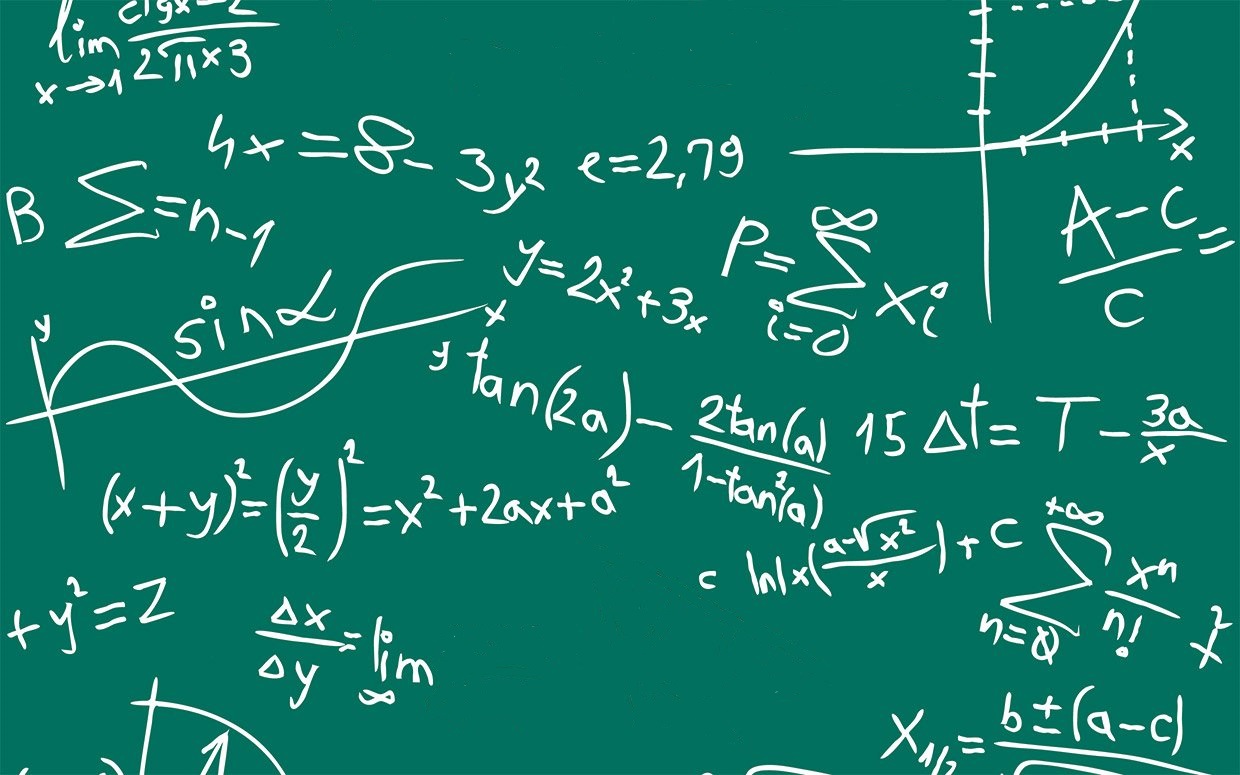 lim x→1 ctgx-2 / 2√11×3
4x=8-3y² e=2,79
x
B Σ=n-1
A-C / C =
y=2x²+3x
P= ∞ Σ i=0 xᵢⁱ
y sinα x
y tan(2a)- 2tan(a) / 1-tan²(a) 15 Δt= T- 3a / x
(x+y)²=(y/2)²=x²+2ax+a²
c ln|x( a-√x² / x )+C +∞ Σ n=0 xⁿ / n! x²
+y²=Z
Δx / Δy = lim ∞
X₁/₂= b±(a-c)